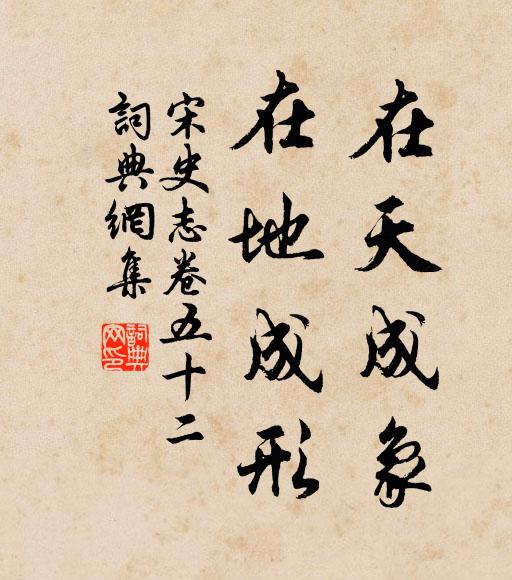 在天成象
在地成形
宋史志卷五十二
詞典網集
詞典网印